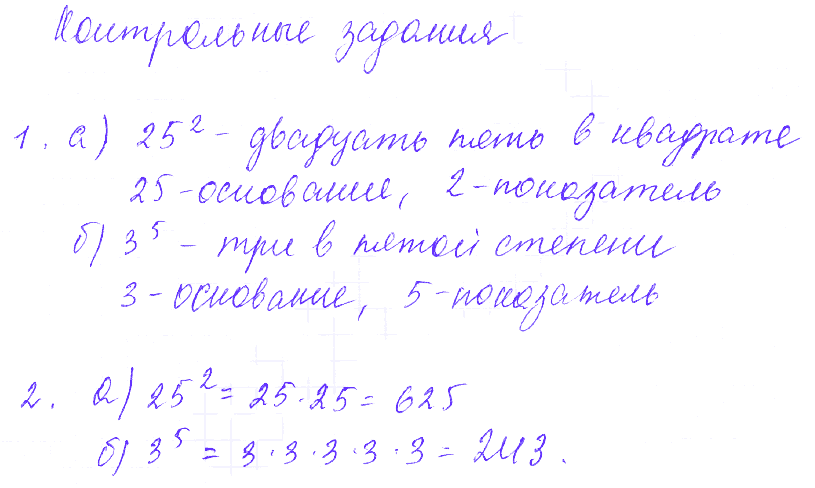 Контрольные задания
1. а) 25² – двадцать пять в квадрате
25 – основание, 2 – показатель
б) 3⁵ – три в пятой степени
3 – основание, 5 – показатель
2. а) 25² = 25 · 25 = 625
б) 3⁵ = 3 · 3 · 3 · 3 · 3 = 243.